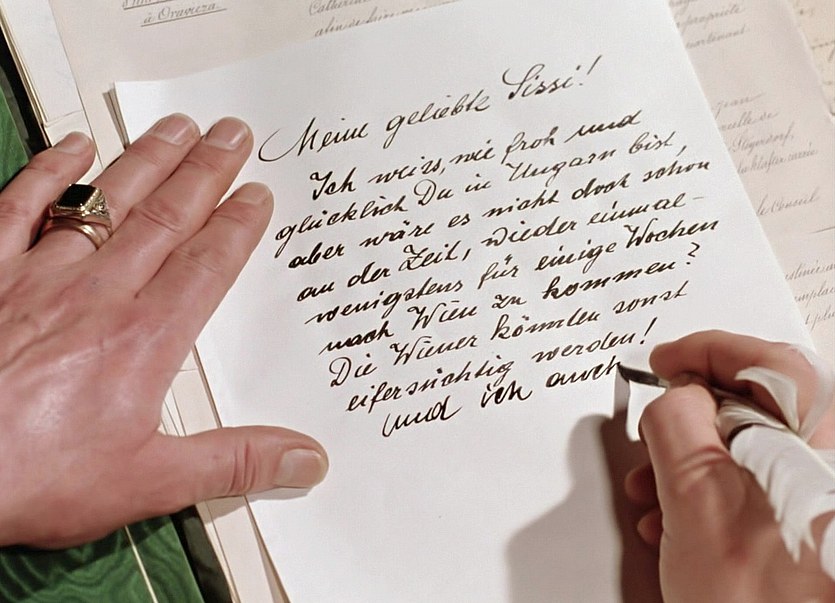 à Oravicza.
Meine geliebte Sissi!
Ich weiss, wie froh und
glücklich Du in Ungarn bist,
aber wäre es nicht doch schon
an der Zeit, wieder einmal-
wenigstens für einige Wochen
nach Wien zu kommen?
Die Wiener könnten sonst
eifersüchtig werden!
Und ich auch
propriété
le Conseil